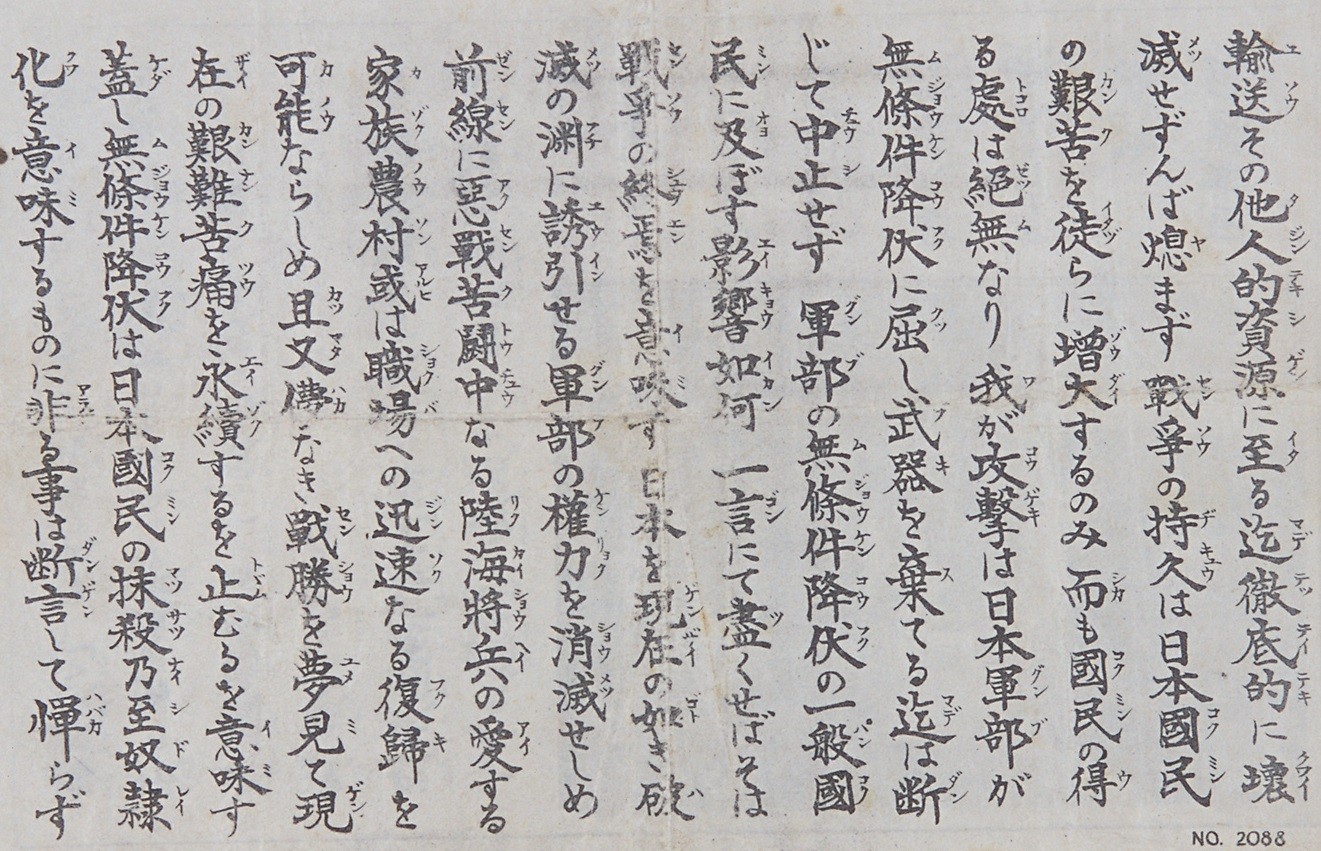 輸送その他人的資源に至る迄徹底的に壊
滅せずんば熄まず 戰爭の持久は日本國民
の艱苦を徒らに增大するのみ 而も國民の得
る處は絕無なり 我が攻擊は日本軍部が
無條件降伏に屈し武器を棄てる迄は断
じて中止せず 軍部の無條件降伏の一般國
民に及ぼす影響如何 一言にて盡くせばそは
戰爭の終焉を意味す 日本を現在の如き破
滅の渊に誘引せる軍部の權力を消滅せしめ
前線に惡戰苦闘中なる陸海將兵の愛する
家族農村或は職場への迅速なる復歸を
可能ならしめ且又儚なき戰勝を夢見て現
在の艱難苦痛を永續するを止むるを意味す
蓋し無條件降伏は日本國民の抹殺乃至奴隷
化を意味するものに非る事は断言して憚らず
NO. 2088